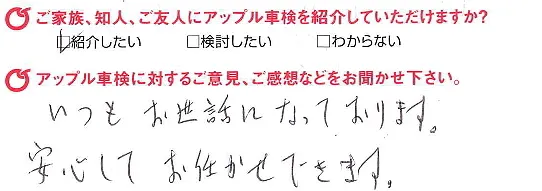 ご家族、知人、ご友人にアップル車検を紹介していただけますか?
☑紹介したい □検討したい □わからない
アップル車検に対するご意見、ご感想などをお聞かせ下さい。
いつも お世話になっております。
安心して お任かせできます。